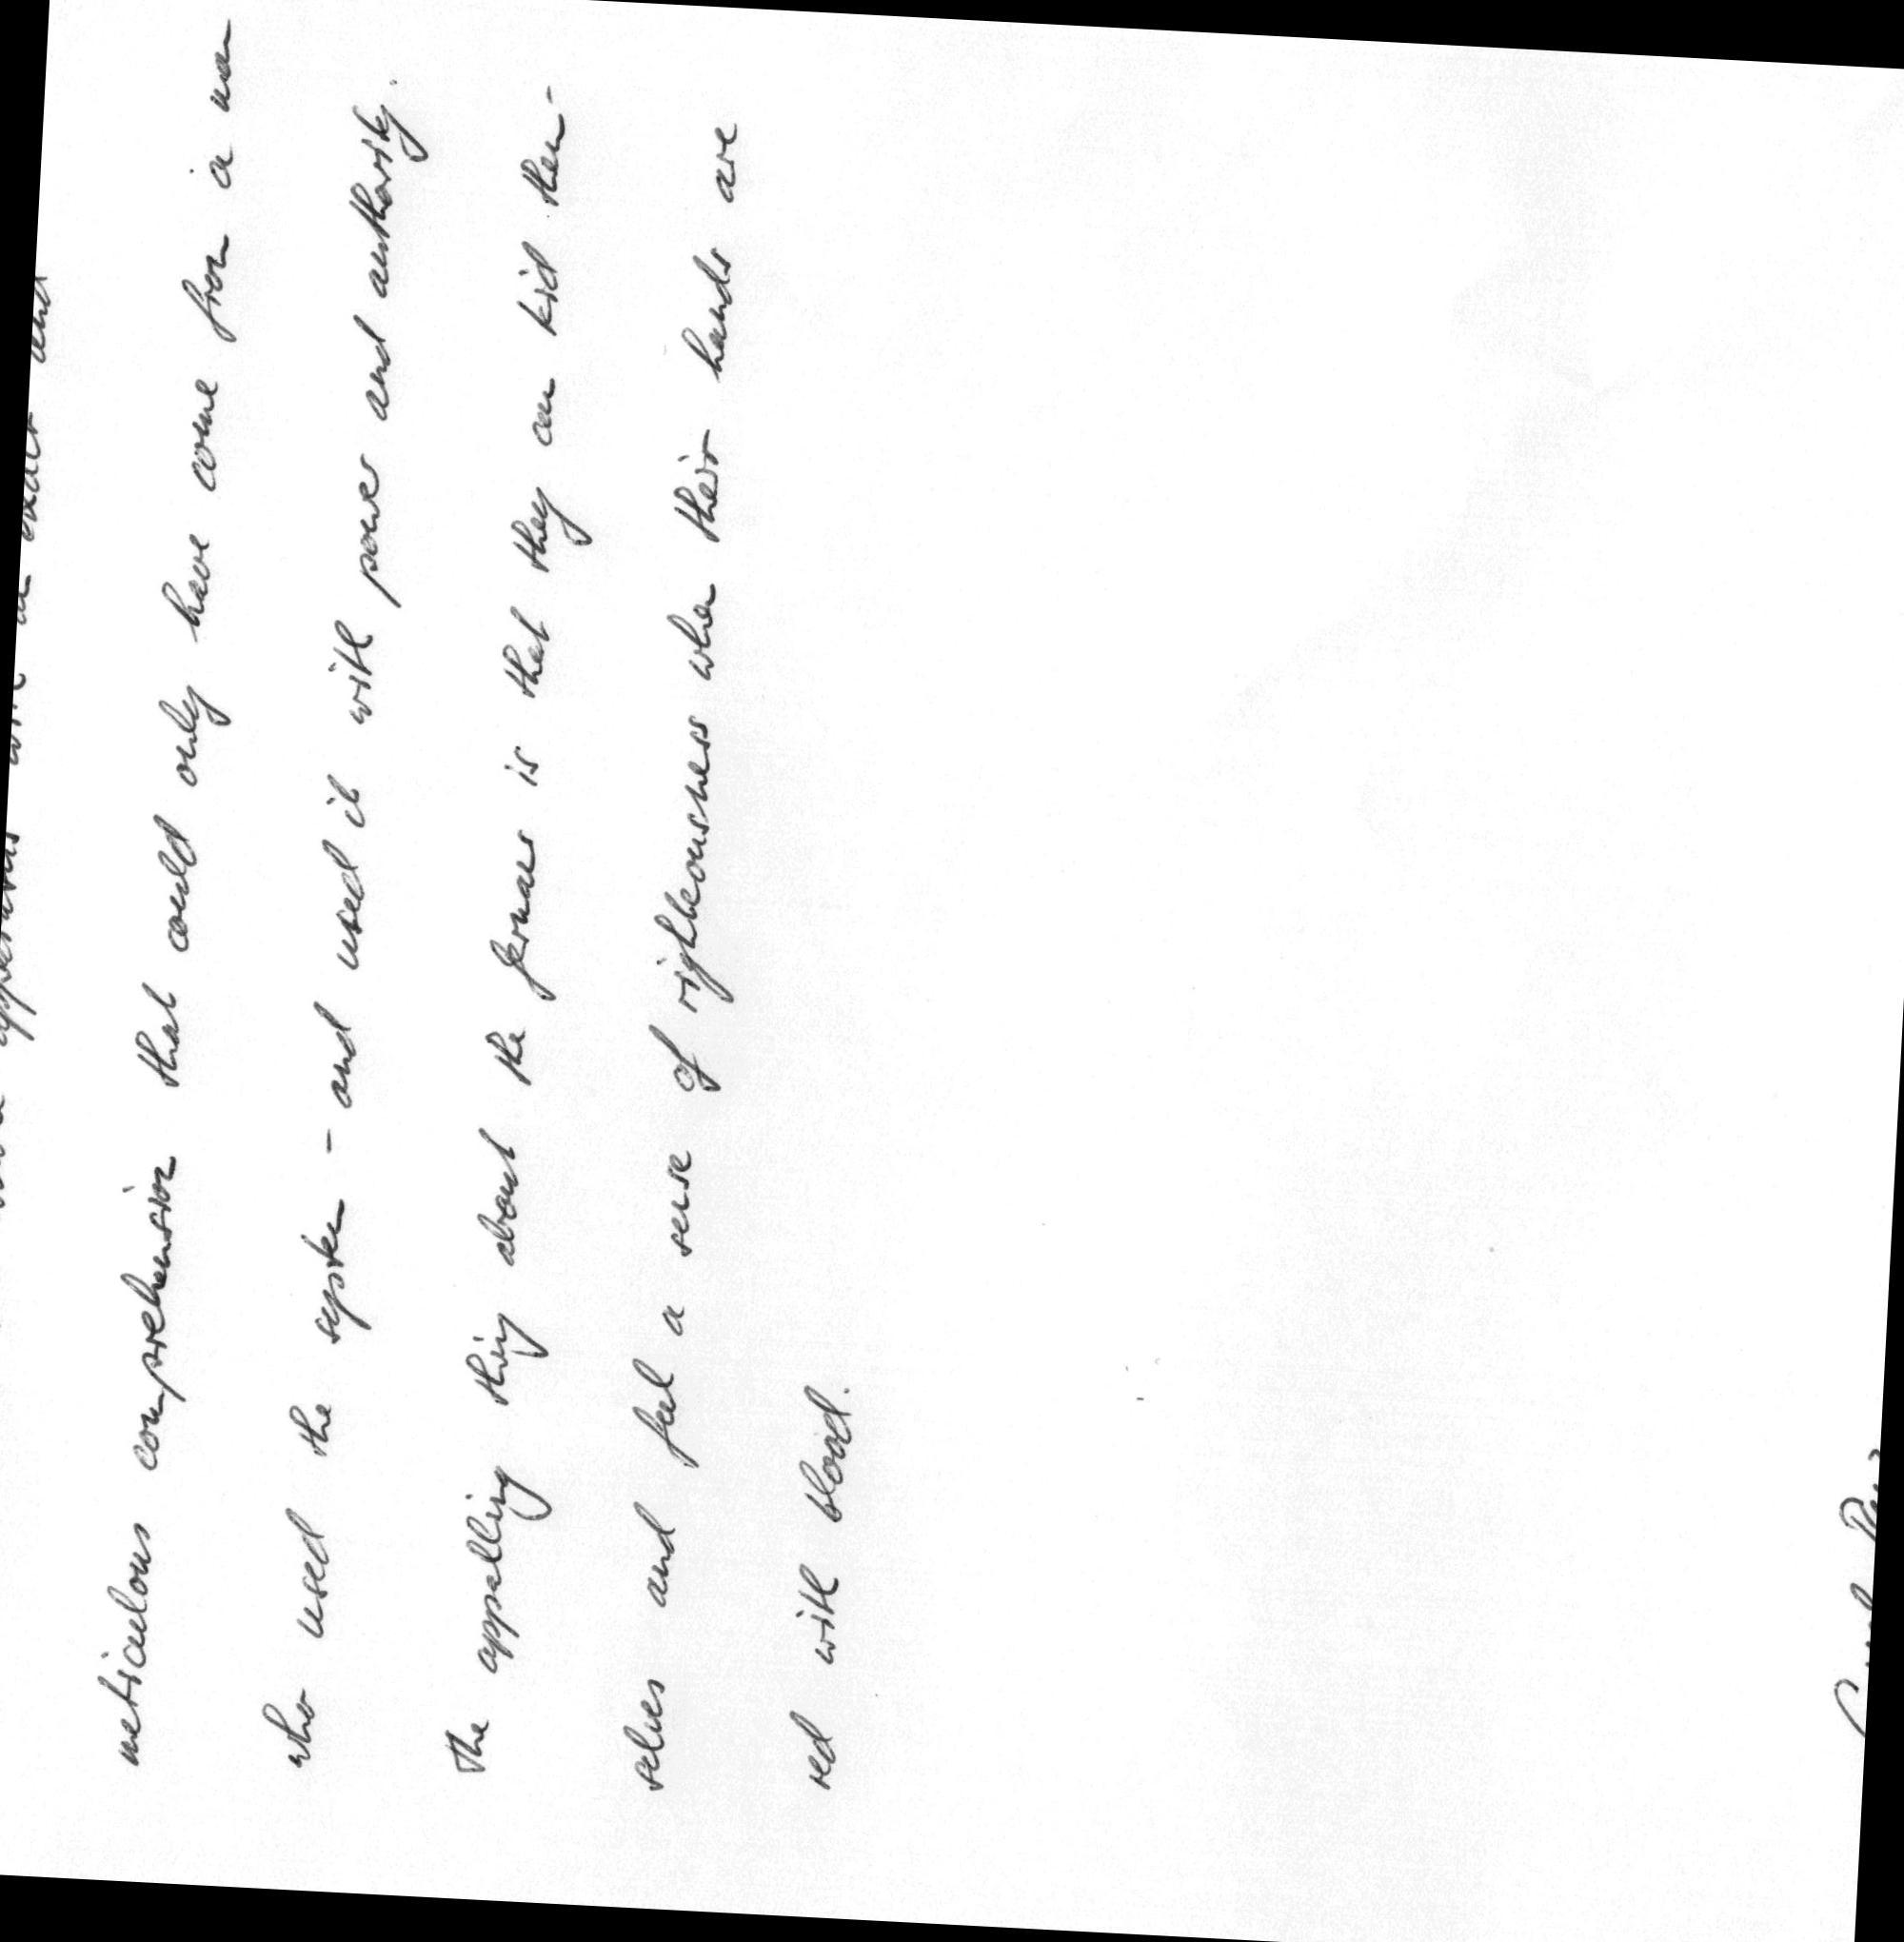 meticulous comprehension that could only have come from a man
who used the system - and used it with power and authority.
The appalling thing about the German is that they can kid them-
selves and feel a sense of righteousness when their hands are
red with blood.